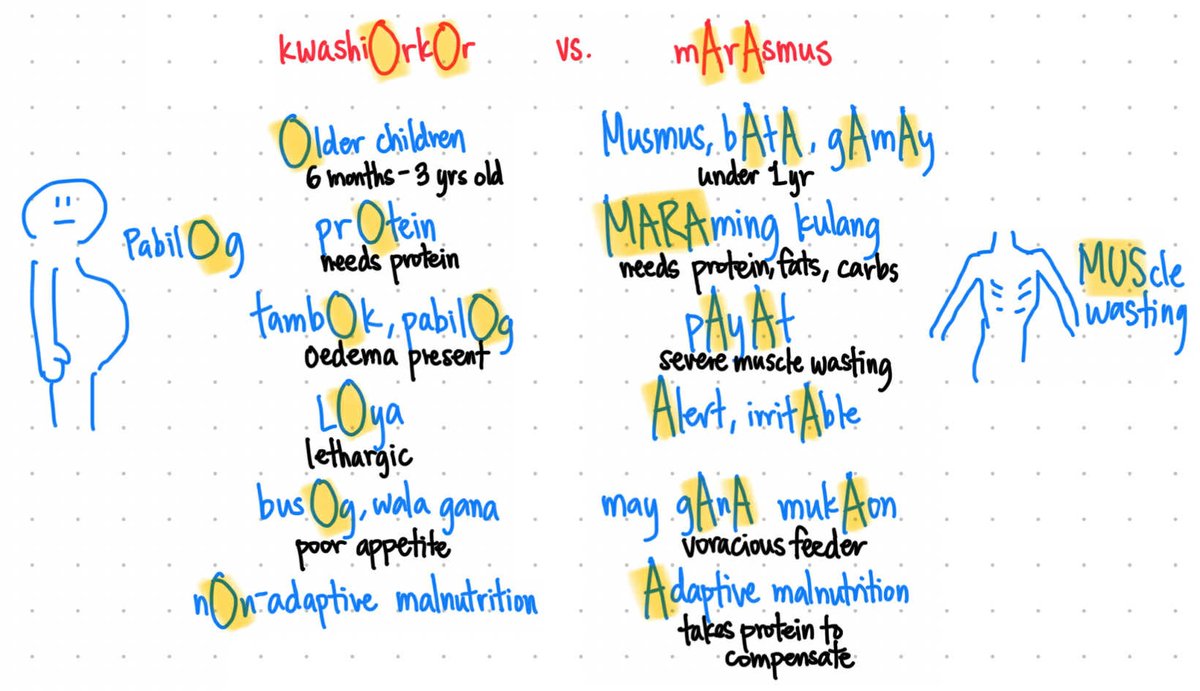 kwashiOrkOr vs. mArAsmus
Older children
6 months - 3 yrs old
Musmus, bAtA, gAmAy
under 1yr
PabilOg
prOtein
needs protein
MARAming kulang
needs protein, fats, carbs
MUScle
wasting
tambOk, pabilOg
oedema present
pAyAt
severe muscle wasting
LOya
lethargic
Alert, irritAble
busOg, wala gana
poor appetite
may gAnA mukAon
voracious feeder
nOn-adaptive malnutrition
Adaptive malnutrition
takes protein to
compensate